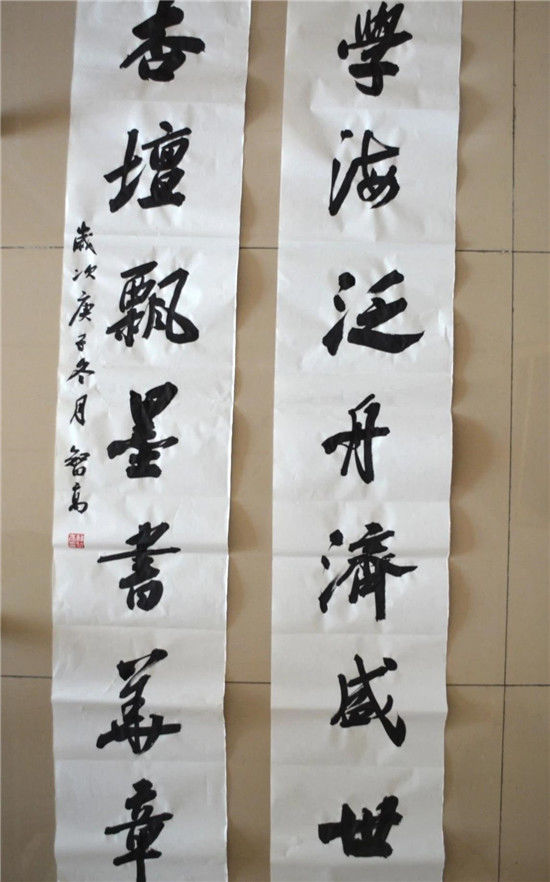 學海泛舟濟盛世
杏壇飄墨書華章
歲次庚子冬月 智高